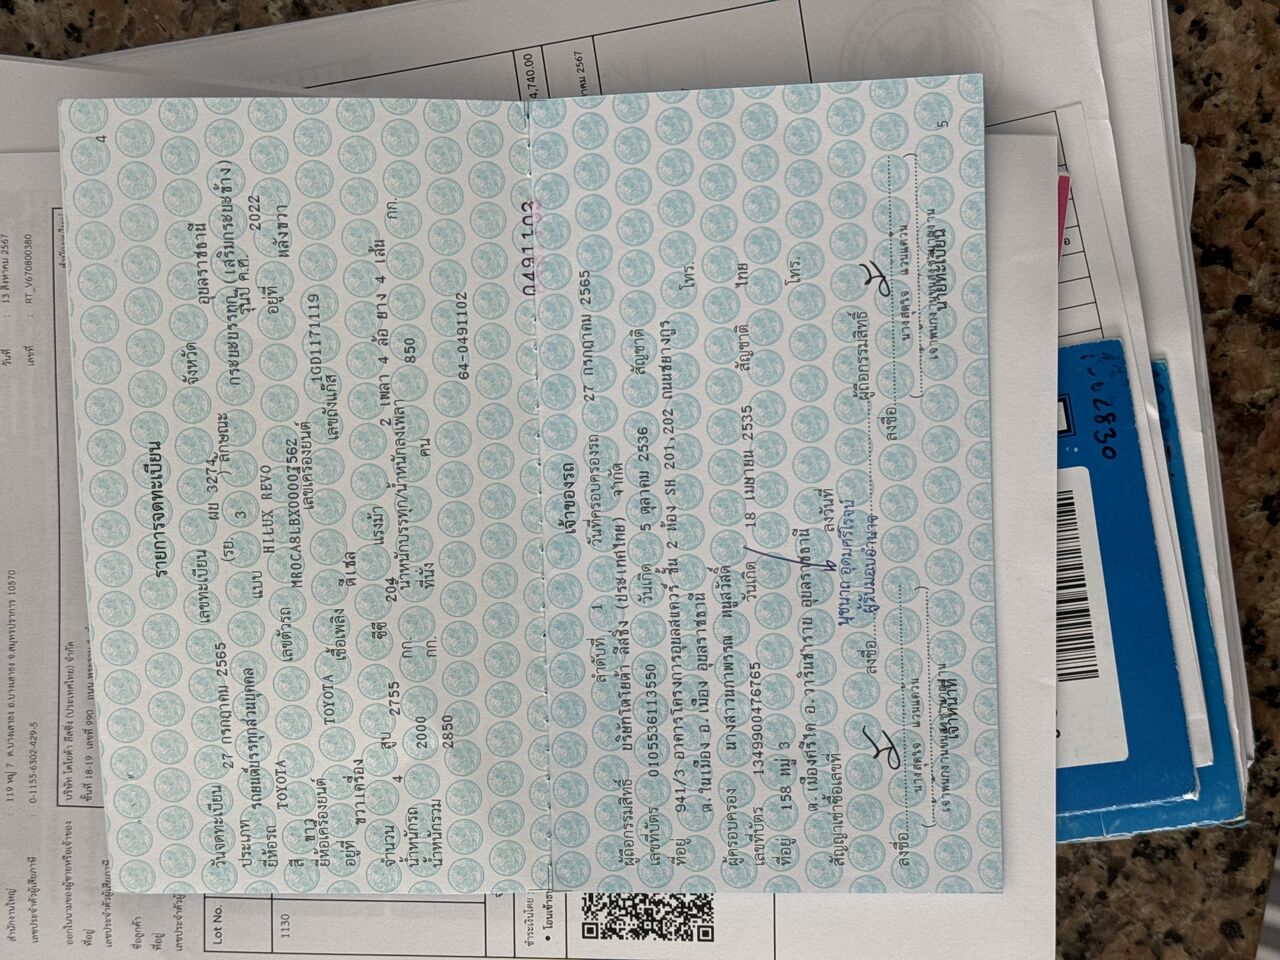 4
รายการจดทะเบียน
วันจดทะเบียน 27 กรกฎาคม 2565 เลขทะเบียน ผย 3274 จังหวัด อุบลราชธานี
ประเภท รถยนต์บรรทุกส่วนบุคคล (รย. 3 ) ลักษณะ กระบะบรรทุก เสริมกระบะข้าง
ยี่ห้อรถ TOYOTA แบบ HILUX REVO รุ่นปี ค.ศ. 2022
สี ขาว เลขตัวรถ อยู่ที่ หลังขวา
ยี่ห้อเครื่องยนต์ TOYOTA เลขเครื่องยนต์ 1GD1171119
อยู่ที่ ขวาเครื่อง เชื้อเพลิง ดีเซล เลขถังแก๊ส
จำนวน 4 สูบ 2755 ซีซี 204 แรงม้า 2 เพลา 4 ล้อ ยาง 4 เส้น
น้ำหนักรถ 2000 กก. น้ำหนักบรรทุก/น้ำหนักลงเพลา 850 กก.
น้ำหนักรวม 2850 กก. ที่นั่ง คน
64-0491102
0491103
เจ้าของรถ
ลำดับที่ 1 วันที่ครอบครองรถ 27 กรกฎาคม 2565
ผู้ถือกรรมสิทธิ์ บริษัทโตโยต้า ลีสซิ่ง (ประเทศไทย) จำกัด
เลขที่บัตร 0105536113550 วันเกิด 5 ตุลาคม 2536 สัญชาติ
ที่อยู่ 941/3 อาคารโครงการอุบลสแควร์ ชั้น 2 ห้อง SH 201,202 ถนนชยางกูร
ต.ในเมือง อ.เมือง อุบลราชธานี โทร.
ผู้ครอบครอง นางสาวนภาพรรณ หนูสวัสดิ์
เลขที่บัตร 1349900476765 วันเกิด 18 เมษายน 2535 สัญชาติ ไทย
ที่อยู่ 158 หมู่ 3
ต.เมืองศรีไค อ.วารินชำราบ อุบลราชธานี โทร.
สัญญาเช่าซื้อเลขที่ ลงวันที่
นุชนาถ อุดมศรีโรจน์
ลงชื่อ ผู้รับมอบอำนาจ ผู้ถือกรรมสิทธิ์
ลงชื่อ ลงชื่อ
นางสดใจ แวนแคว้น นางสดใจ แวนแคว้น
เจ้าพนักงานขนส่งชำนาญงาน เจ้าพนักงานขนส่งชำนาญงาน
เจ้าหน้าที่ นายทะเบียน
5
วันที่ : 13 สิงหาคม 2567
เลขที่ : RT_V670800380
สำนักงานใหญ่ 119 หมู่ 7 ต.บางเสาธง อ.บางเสาธง จ.สมุทรปราการ 10570
เลขประจำตัวผู้เสียภาษี : 0-1155-6302-429-5
ออกในนามของผู้ขายหรือเจ้าของ บริษัท โตโยต้า ลีสซิ่ง (ประเทศไทย) จำกัด
ที่อยู่
เลขประจำตัวผู้เสียภาษี
ชื่อลูกค้า
ที่อยู่
Lot No.
1130
ชำระเงินโดย
4,740.00